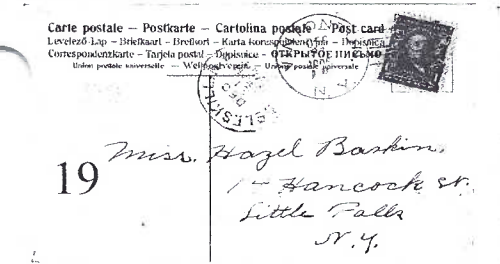 Carte postale – Postkarte – Cartolina postale – Post card
Levelező-Lap – Briefkaart – Brefkort – Karta Korespondentyjna – Dopisnica
Correspondenzkarte – Tarjeta postal – Dopisnice – ОТКРЫТОЕ ПИСЬМО
Union postale universelle – Weltpostverein – Union postale universale
DEC
19
Miss. Hazel Baskin,
Hancock St.
Little Falls
N.Y.